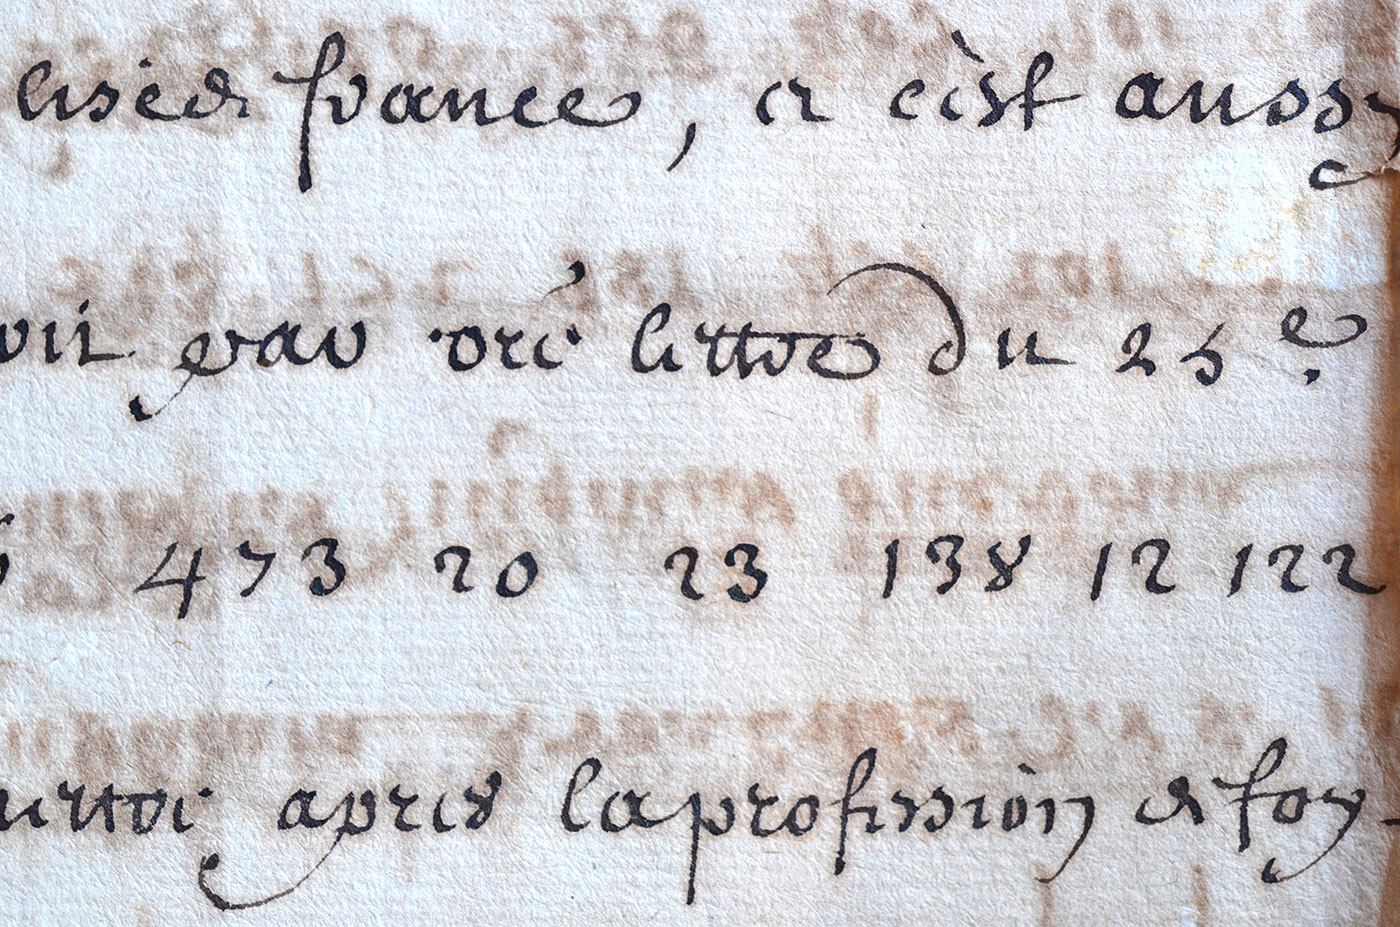 france, et c'est aussy
voir par vre lettre du 25e.
473 20 23 138 12 122
mettre apres la profession de foy